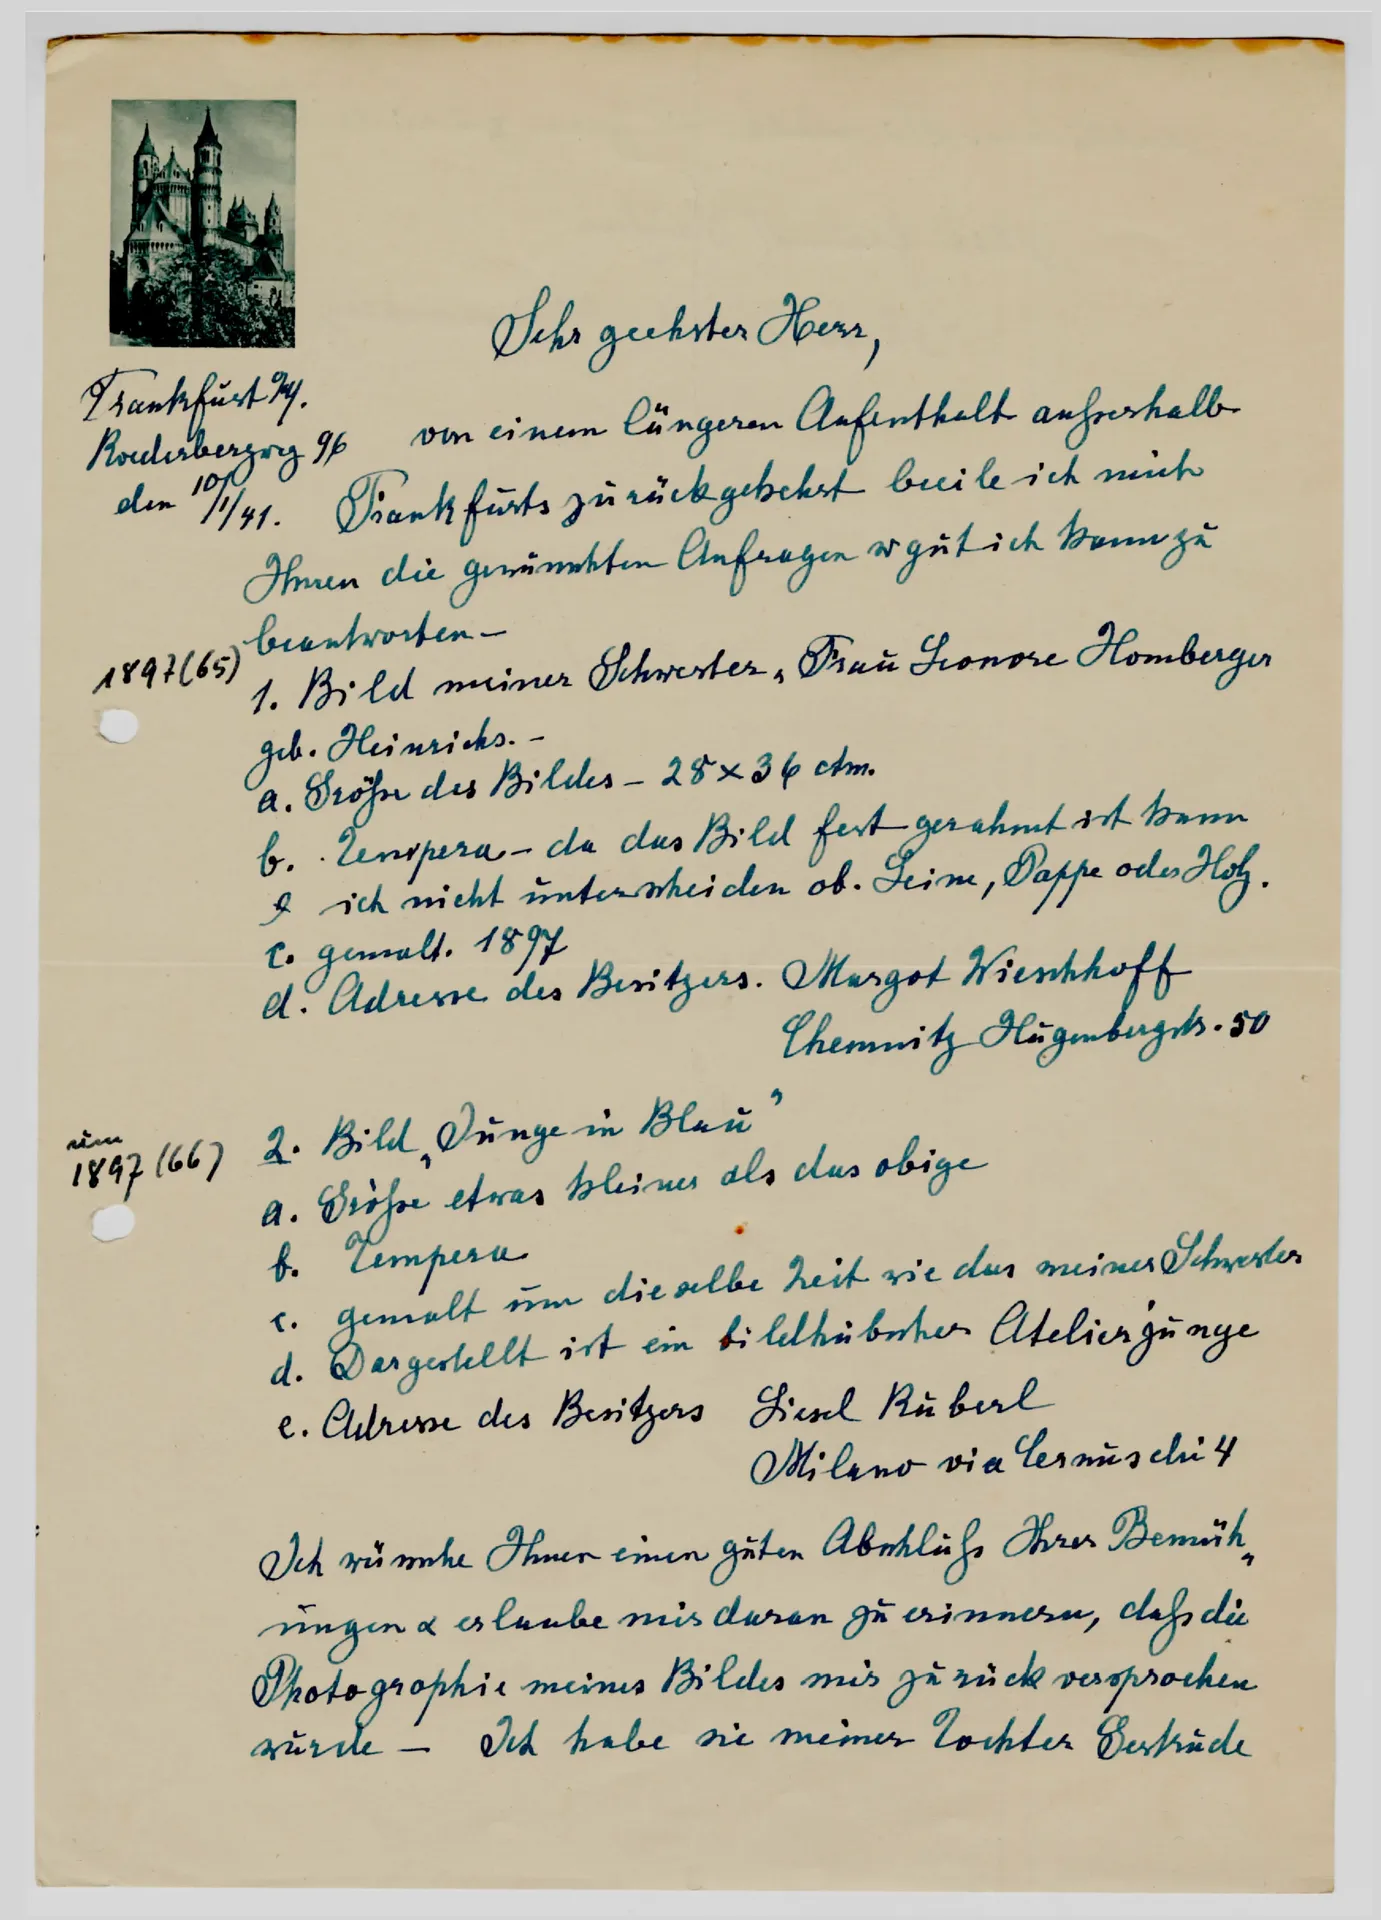 Sehr geehrter Herr,
Frankfurt M.
Roederbergweg 96
den 10/1/41.
von einem längeren Aufenthalt außerhalb
Frankfurts zurückgekehrt beeile ich mich
Ihnen die gewünschten Anfragen so gut ich kann zu
beantworten –
1897 (65)
1. Bild meiner Schwester „Frau Leonore Homberger
geb. Heinrichs. –
a. Größe des Bildes – 28 x 36 ctm.
b. Tempera – da das Bild fest gerahmt ist kann
ich nicht unterscheiden ob. Leine, Pappe oder Holz.
c. gemalt. 1897
d. Adresse des Besitzers. Margot Wieschhoff
Chemnitz Hugenbergstr. 50
um
1897 (66)
2. Bild „Junge in Blau"
a. Größe etwas kleiner als das obige
b. Tempera
c. gemalt um dieselbe Zeit wie das meiner Schwester
d. Dargestellt ist ein bildhübscher Atelierjunge
e. Adresse des Besitzers Liesel Ruberl
Milano via Cernuschi 4
Ich wünsche Ihnen einen guten Abschluß Ihrer Bemüh„
ungen & erlaube mir daran zu erinnern, daß die
Photographie meines Bildes mir zurück versprochen
wurde – Ich habe sie meiner Tochter Gertrude